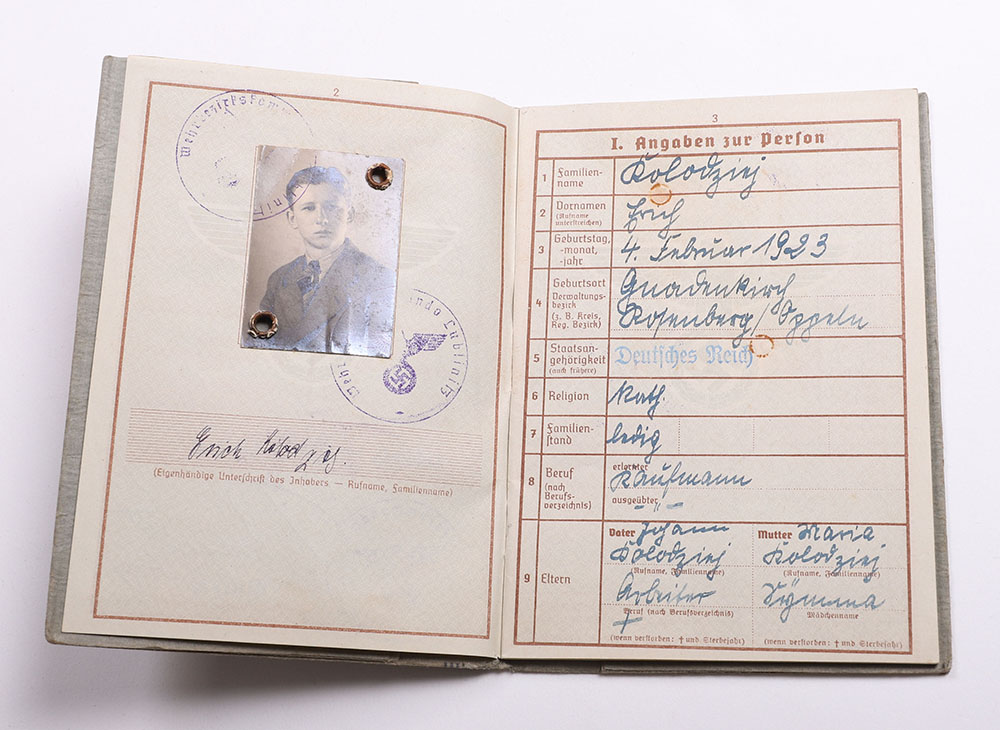 2
Wehrbezirkskomm
Lublinitz
Erich Kolodziej.
(Eigenhändige Unterschrift des Inhabers — Rufname, Familienname)
3
I. Angaben zur Person
1 Familien-
name
Kolodziej
2 Vornamen
(Rufname
unterstreichen)
Erich
3 Geburtstag,
-monat,
-jahr
4. Februar 1923
4 Geburtsort
Verwaltungs-
bezirk
(z. B. Kreis,
Reg. Bezirk)
Gnadenkirch
Rosenberg/Oppeln
5 Staatsan-
gehörigkeit
(auch frühere)
Deutsches Reich
6 Religion
kath.
7 Familien-
stand
ledig
8 Beruf
(nach
Berufs-
verzeichnis)
erlernter
Kaufmann
ausgeübter – „ –
9 Eltern
Vater Johann
Kolodziej
(Rufname, Familienname)
Arbeiter
Beruf (nach Berufsverzeichnis)
†
(wenn verstorben: † und Sterbejahr)
Mutter Maria
Kolodziej
(Rufname, Familienname)
Mädchenname
(wenn verstorben: † und Sterbejahr)